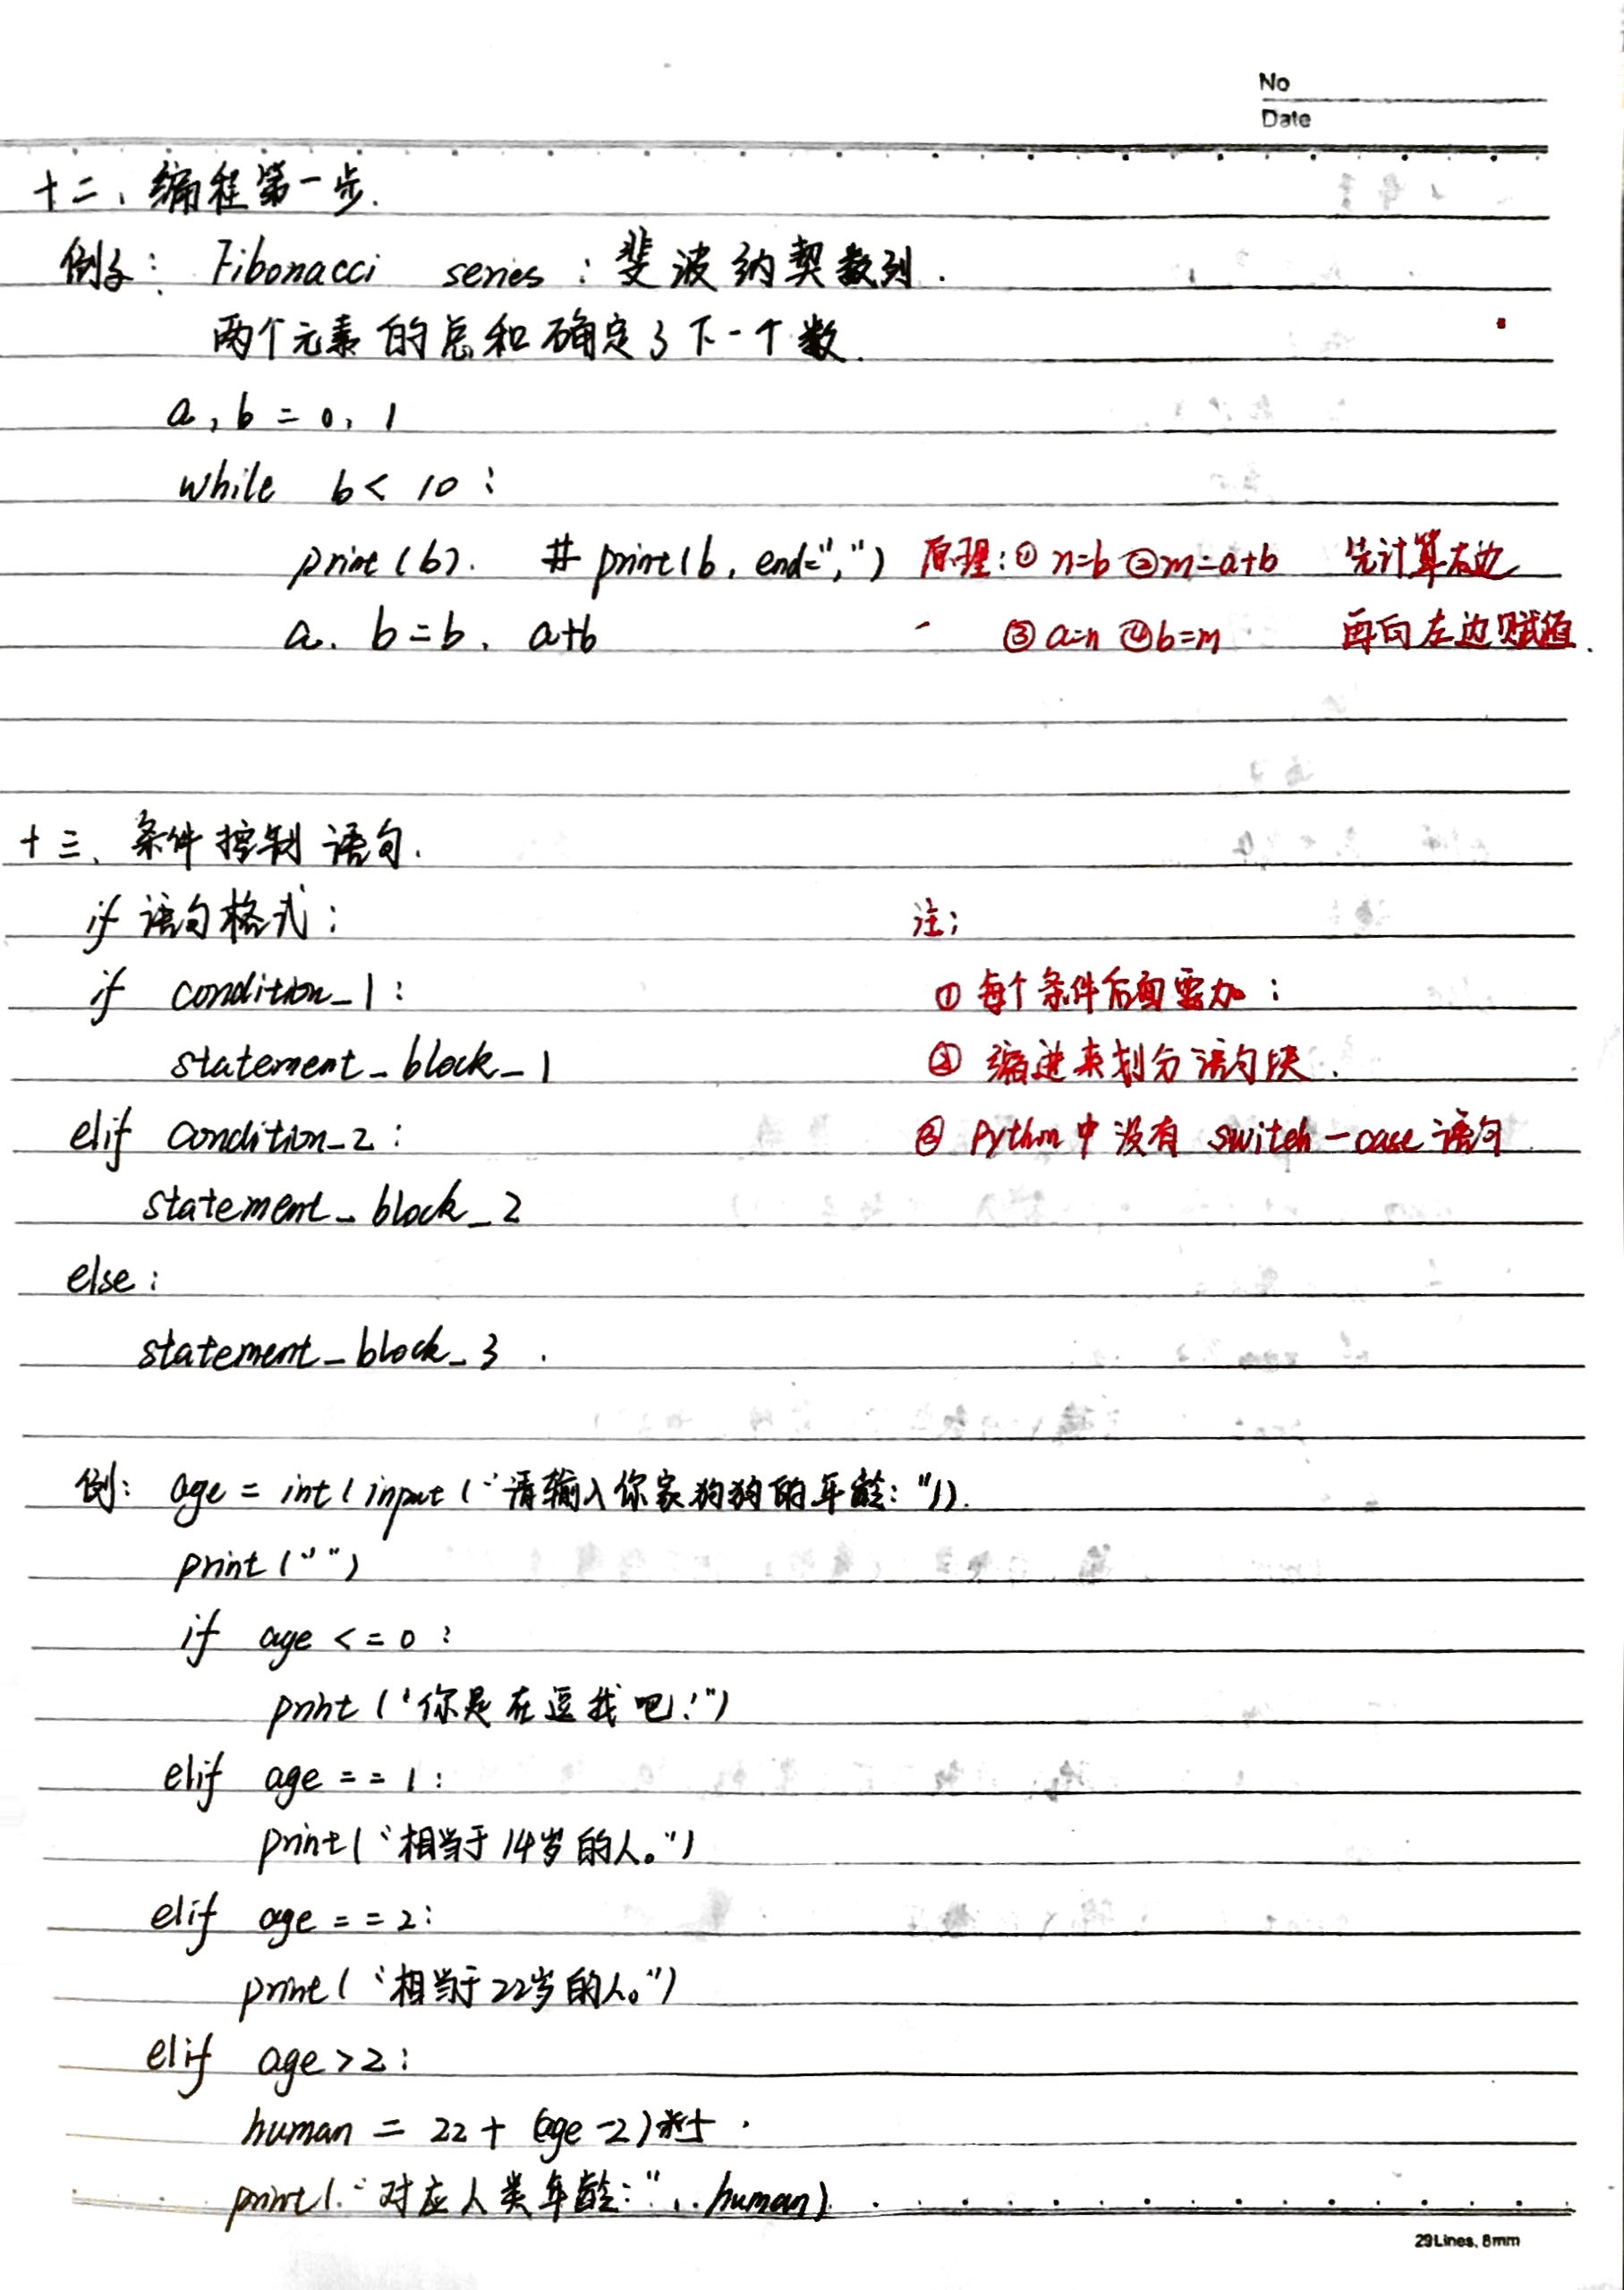 No
Date
十二、编程第一步.
例子: Fibonacci series : 斐波纳契数列.
两个元素的总和确定了下一个数.
a, b = 0, 1
while b < 10 :
print(b). # print(b, end=",") 原理: ① n=b ② m=a+b 先计算右边
a, b = b, a+b ③ a=n ④ b=m 再向左边赋值.
十三、条件控制语句.
if 语句格式: 注:
if condition_1: ① 每个条件后面要加 :
statement_block_1 ② 缩进来划分语句块.
elif condition_2: ③ Python中没有 switch-case 语句.
statement_block_2
else:
statement_block_3.
例: age = int(input("请输入你家狗狗的年龄: ")).
print("")
if age <= 0 :
print("你是在逗我吧!")
elif age == 1:
print("相当于14岁的人。")
elif age == 2:
print("相当于22岁的人。")
elif age > 2:
human = 22 + (age-2)*5.
print("对应人类年龄: ", human)
29Lines, 8mm